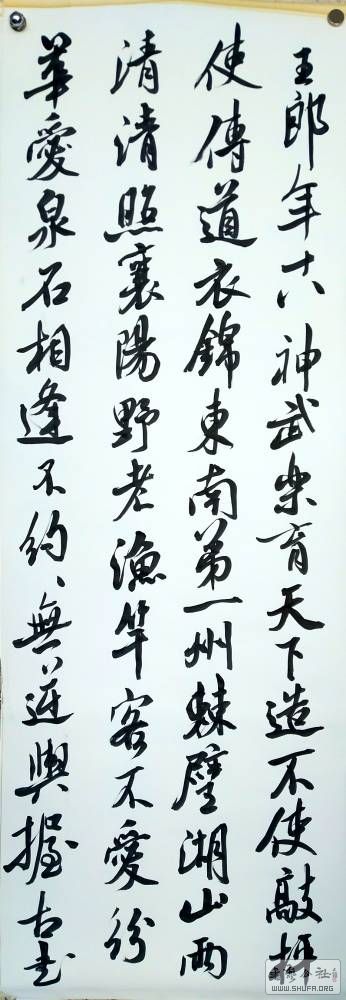 王郎年十八神武樂育天下造不使敲枰
使傳道衣錦東南第一州棘璧湖山兩
清清照襄陽野老漁竿客不愛紛
華愛泉石相逢不約、無逆輿握古書
WWW.SHUFA.ORG